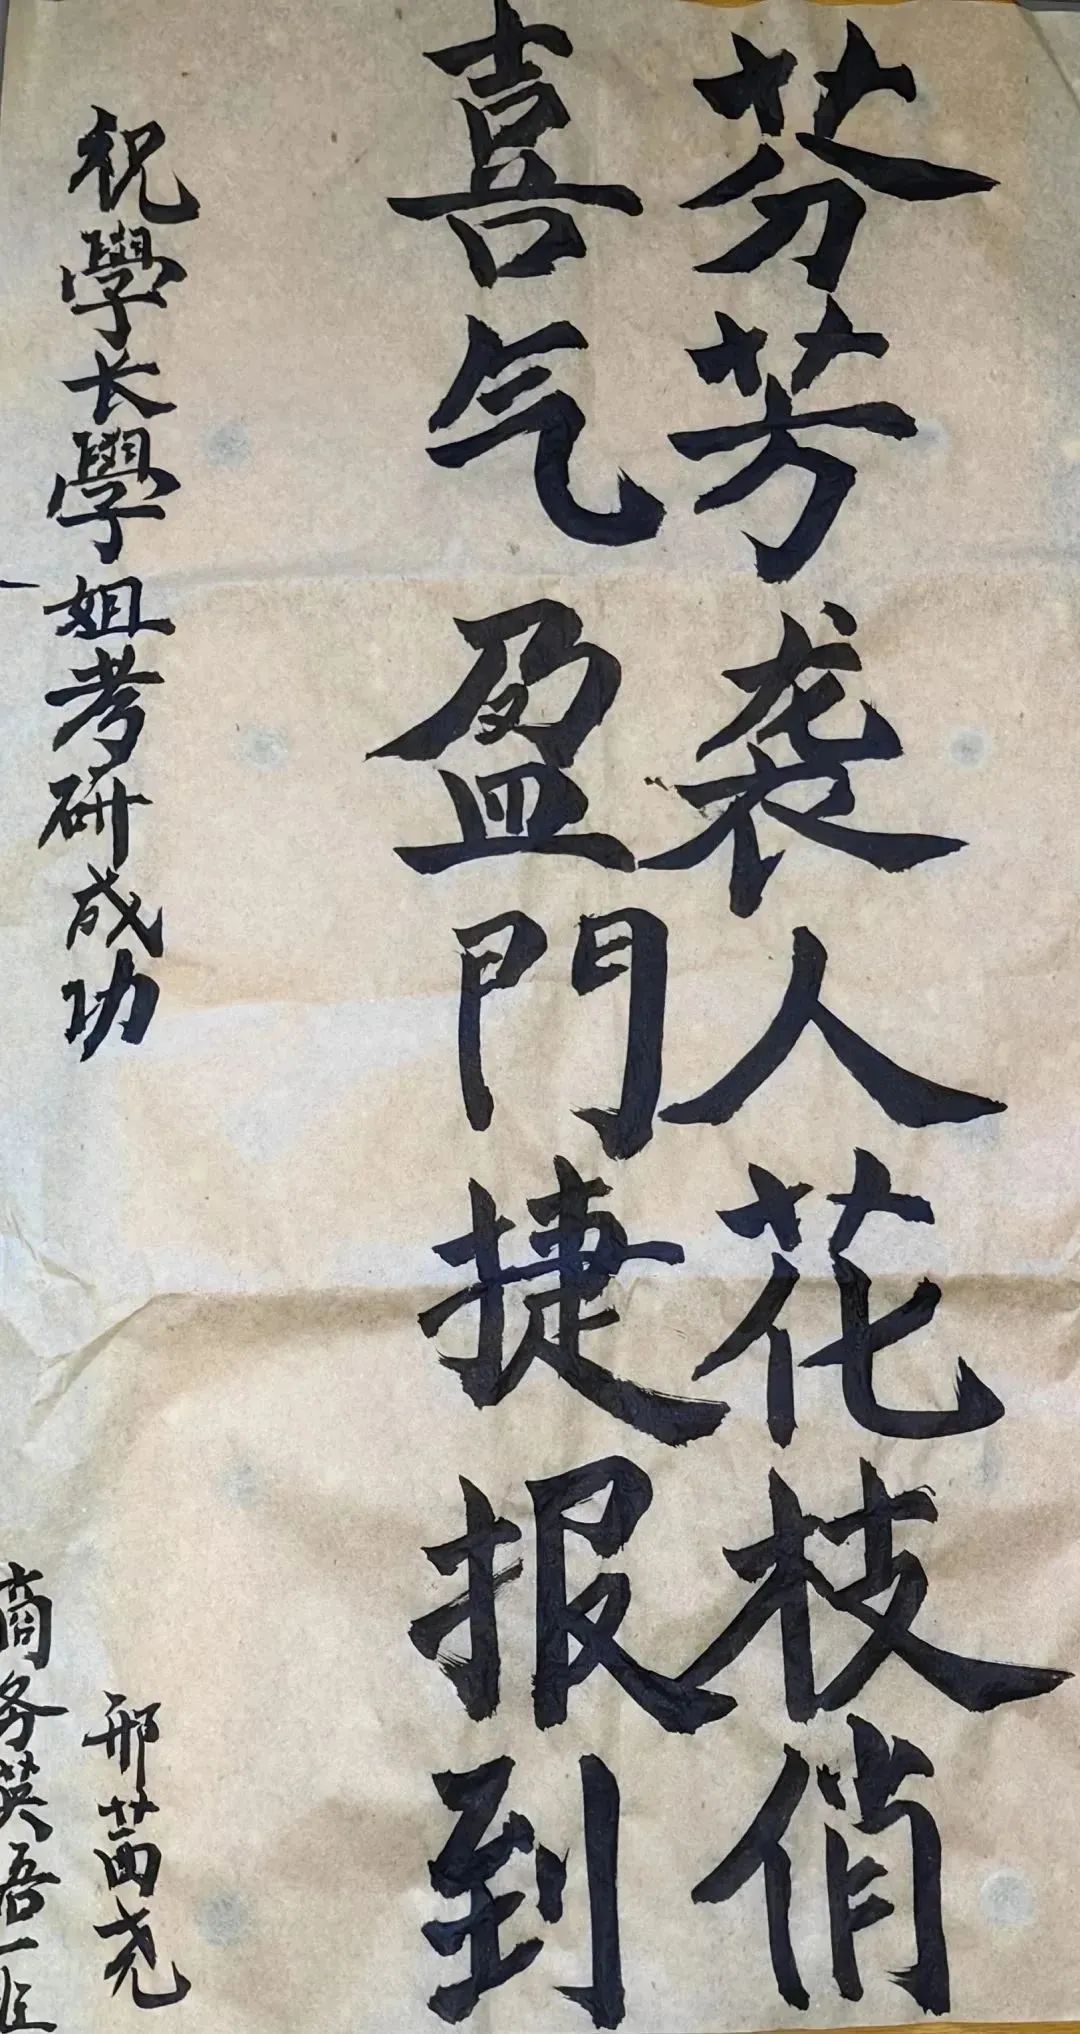 芬芳袭人花枝俏
喜气盈門捷报到
祝學长學姐考研成功
邢茜尧
商务英语一班